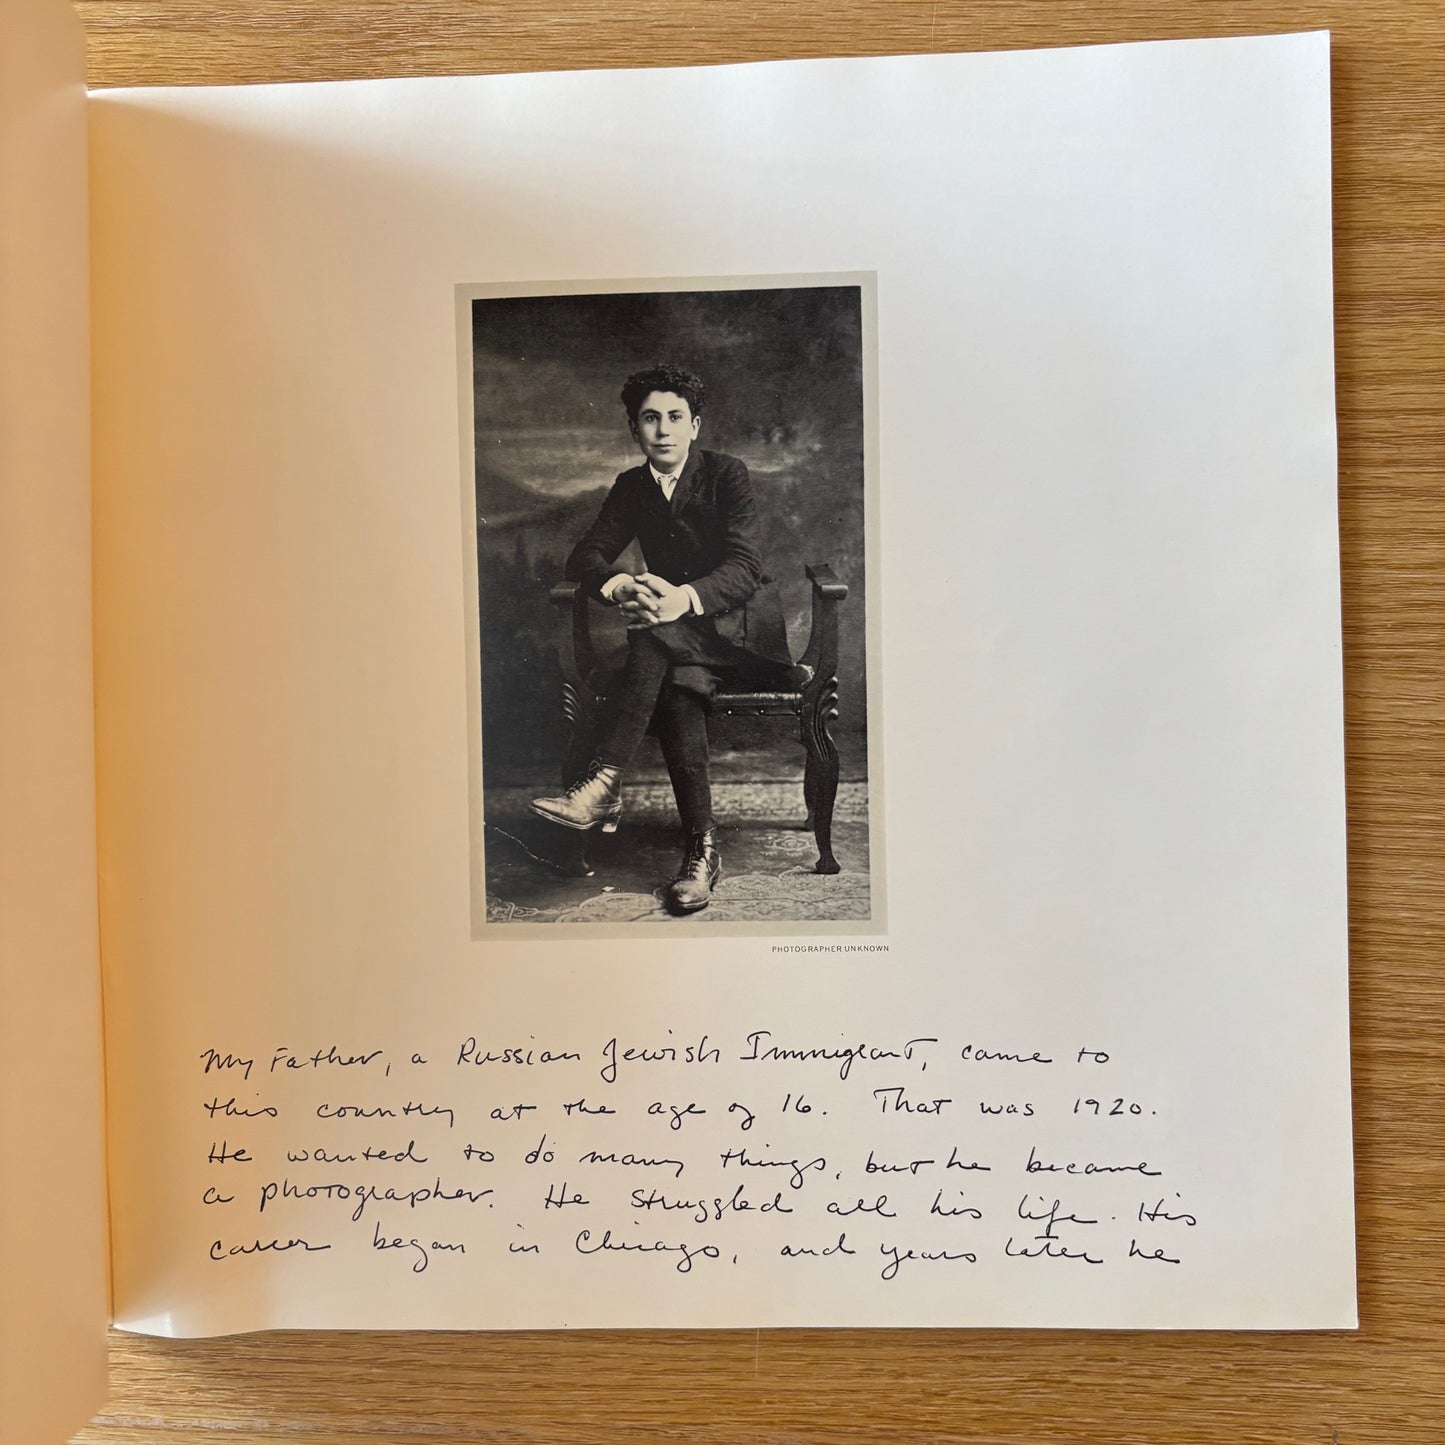 PHOTOGRAPHER UNKNOWN
My Father, a Russian Jewish Immigrant, came to
this country at the age of 16. That was 1920.
He wanted to do many things, but he became
a photographer. He struggled all his life. His
career began in Chicago, and years later he